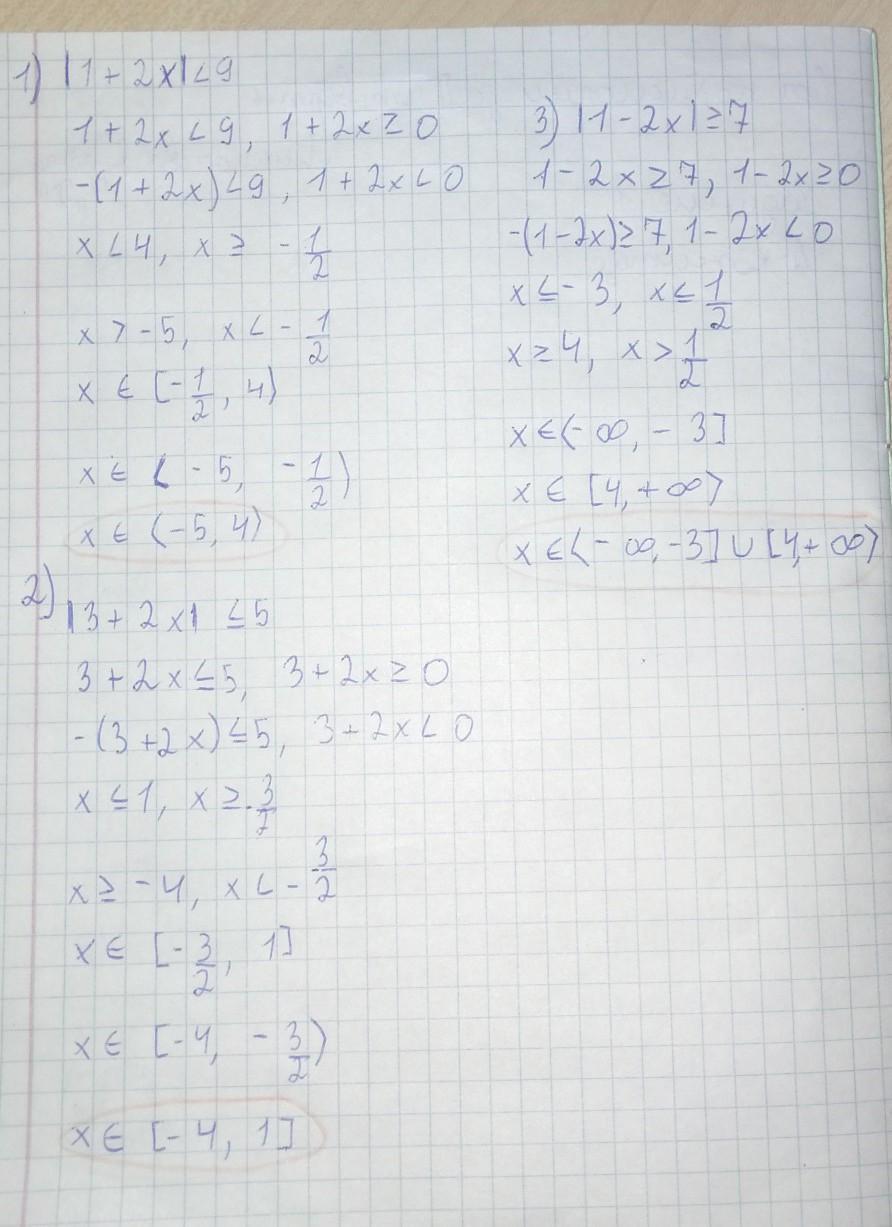 1) |1 + 2x| < 9
1 + 2x < 9, 1 + 2x ≥ 0
-(1 + 2x) < 9, 1 + 2x < 0
x < 4, x ≥ -1/2
x > -5, x < -1/2
x ∈ [-1/2, 4)
x ∈ (-5, -1/2)
x ∈ (-5, 4)
2) |3 + 2x| ≤ 5
3 + 2x ≤ 5, 3 + 2x ≥ 0
-(3 + 2x) ≤ 5, 3 + 2x < 0
x ≤ 1, x ≥ -3/2
x ≥ -4, x < -3/2
x ∈ [-3/2, 1]
x ∈ [-4, -3/2)
x ∈ [-4, 1]
3) |1 - 2x| ≥ 7
1 - 2x ≥ 7, 1 - 2x ≥ 0
-(1 - 2x) ≥ 7, 1 - 2x < 0
x ≤ -3, x ≤ 1/2
x ≥ 4, x > 1/2
x ∈ (-∞, -3]
x ∈ [4, +∞)
x ∈ (-∞, -3] ∪ [4, +∞)